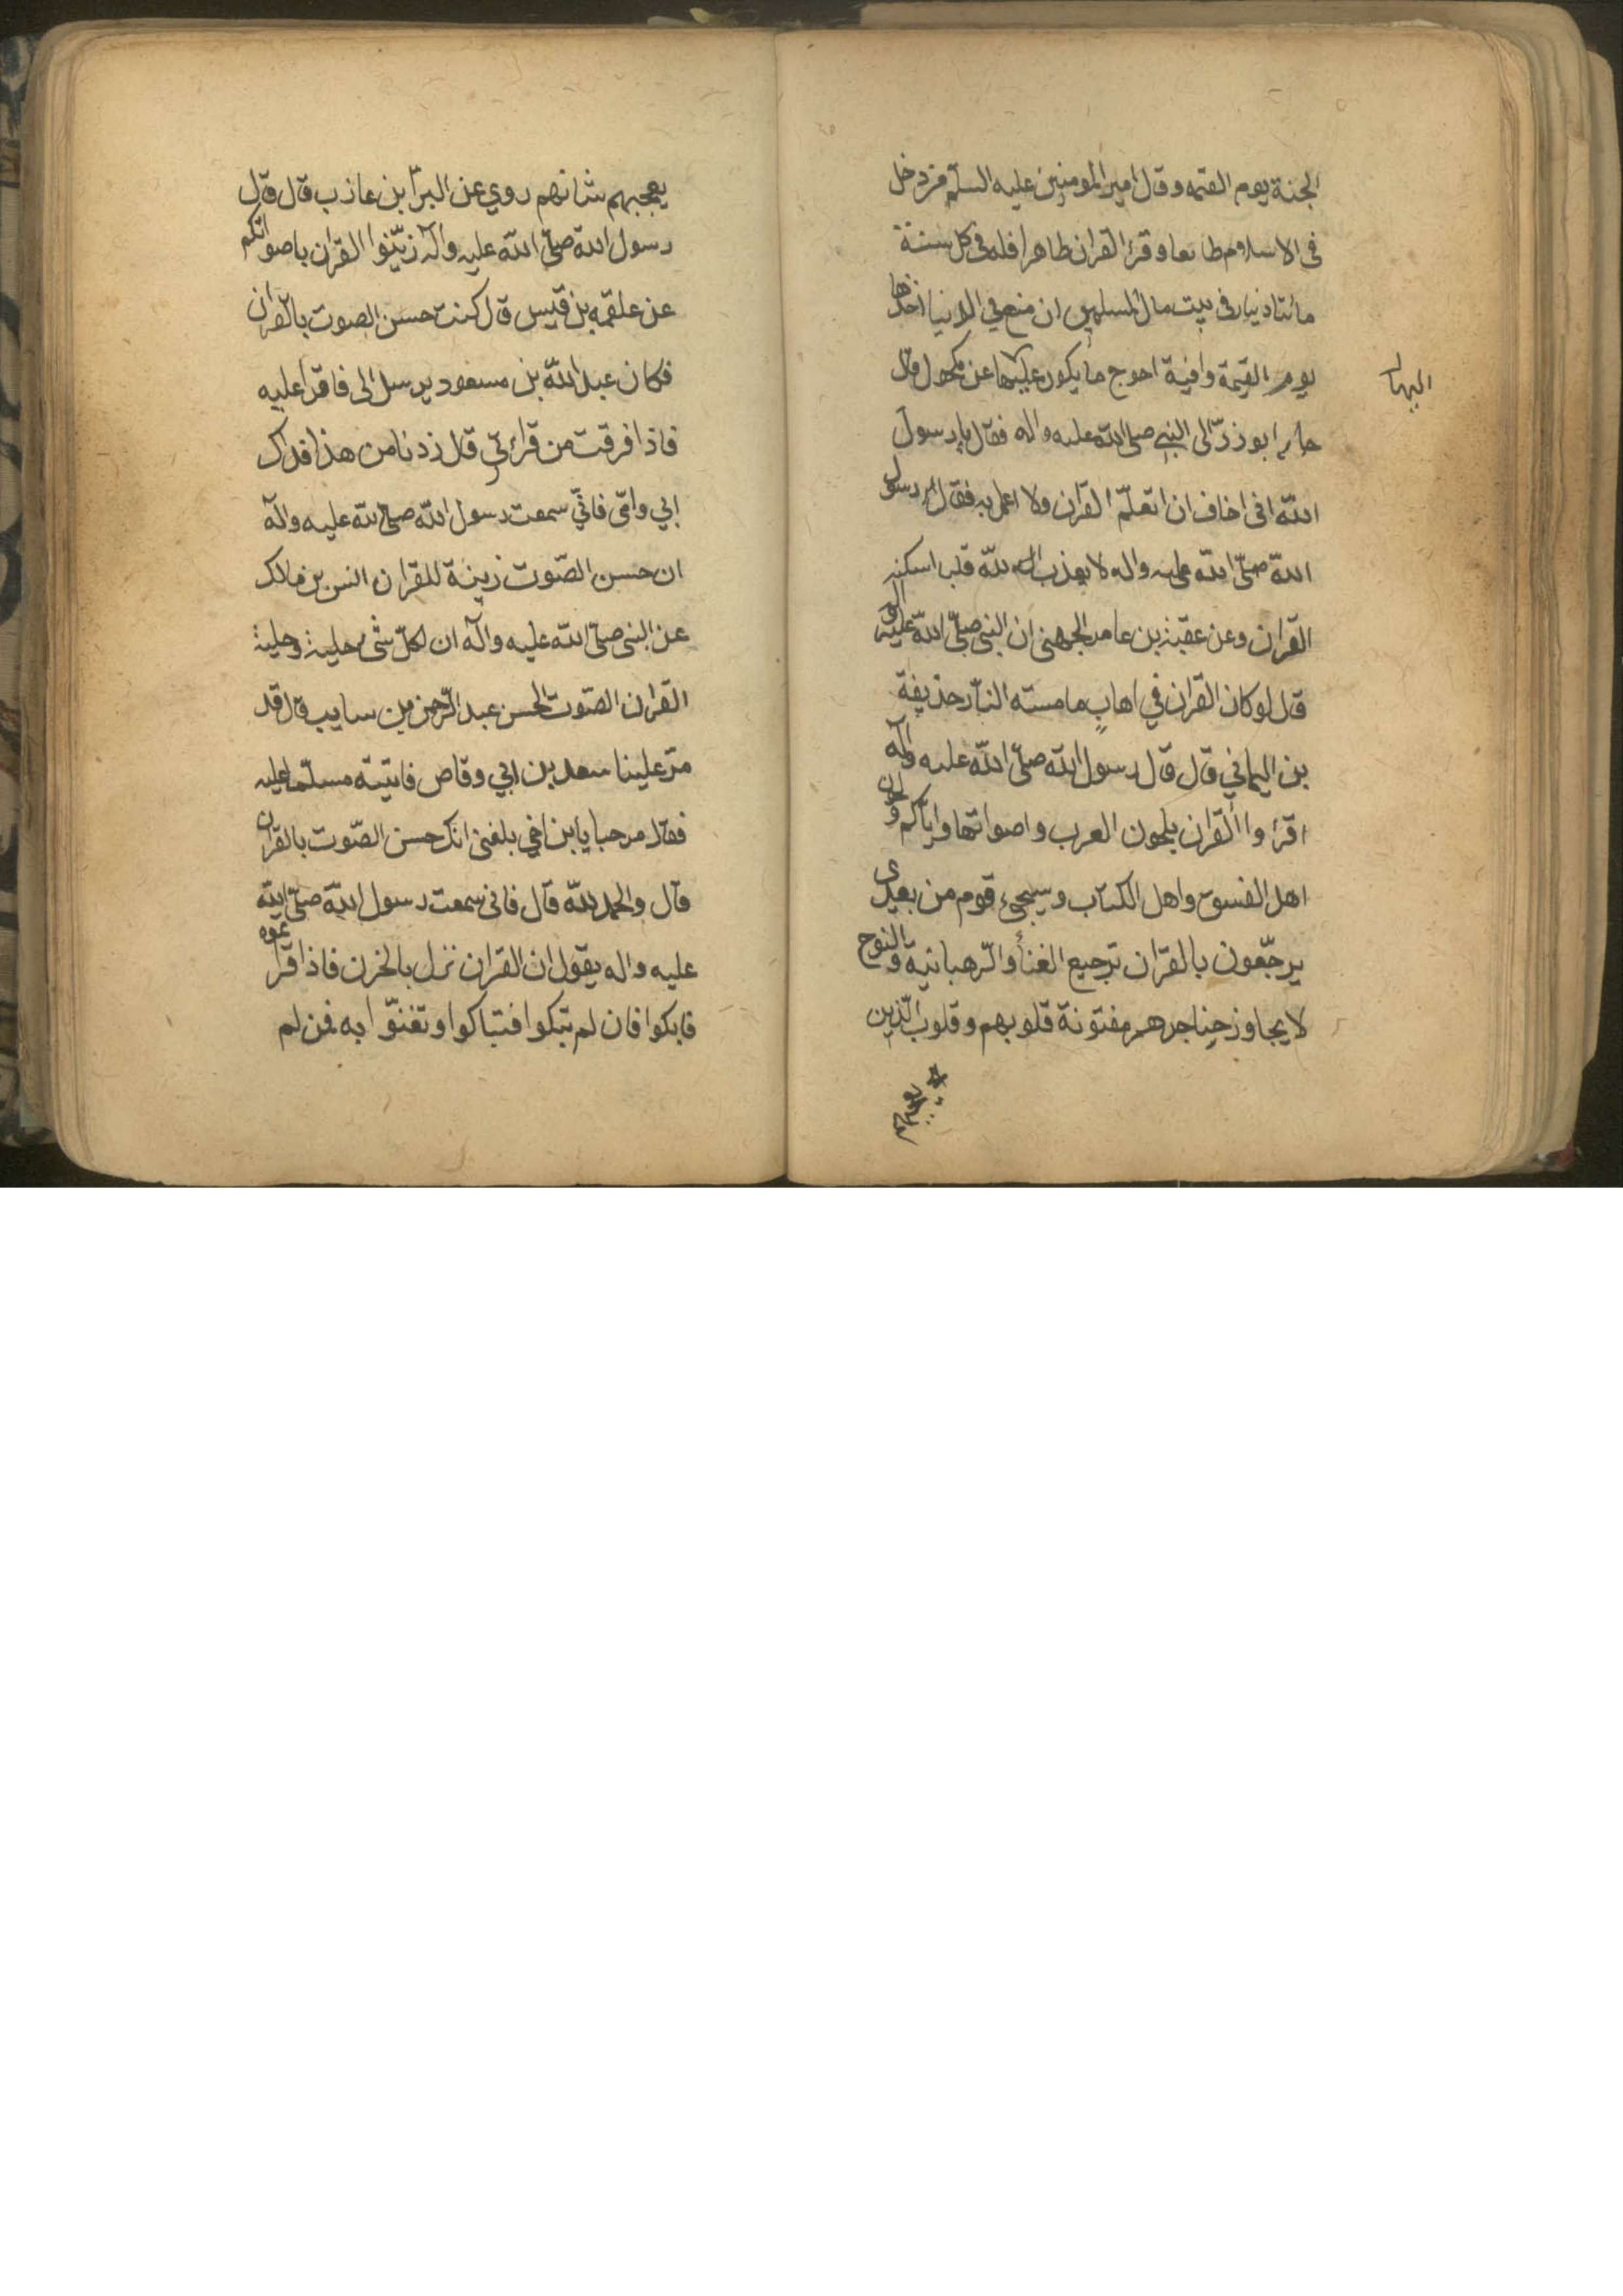 الجنة يوم القيمه وقال امير المومنين عليه السلم من دخل
فى الاسلام طائعا وقرء القران ظاهرا فله فى كل سنة
مائتا دينار فى بيت مال المسلمين ان منع في الدنيا اخذها
يوم القيمة وافية احوج ما يكون عليها عن مكحول قال
اليها
جاء ابو ذرّ الى النبي صلى الله عليه واله فقال يا رسول
الله انى اخاف ان اتعلّم القران ولا اعمل به فقال رسول
الله صلّى الله عليه واله لا يعذب الله قلبا اسكنه
القران وعن عقبة بن عامر الجهنى ان النبى صلّى الله عليه واله
قال لو كان القران في اهابٍ ما مسته النار حذيفة
بن اليماني قال قال رسول الله صلّى الله عليه واله
اقرؤا القران بلحون العرب واصواتها واياكم ولحون
اهل الفسوق واهل الكتاب وسيجىء قوم من بعدى
يرجّعون بالقران ترجيع الغناء والرّهبانية والنوح
لا يجاوز حناجرهم مفتونة قلوبهم وقلوب الّذين
يعجبهم شانهم روي عن البراء بن عازب قال قال
رسول الله صلّى الله عليه واله زيّنوا القران باصواتكم
عن علقمه بن قيس قال كنت حسن الصوت بالقران
فكان عبد الله بن مسعود يرسل الى فاقرا عليه
فاذا فرقت من قرائتي قال زدنا من هذا فداك
ابي وامّى فانّي سمعت رسول الله صلى الله عليه واله
ان حسن الصّوت زينة للقران انس بن مالك
عن النبى صلّى الله عليه واله ان لكلّ شىء حلية وحلية
القران الصّوت الحسن عبد الرّحمن بن سايب قال قد
مرّ علينا سعد بن ابي وقاص فاتيته مسلّما عليه
فقال مرحبا يا بن اخي بلغنى انك حسن الصّوت بالقران
قال والحمد لله قال فانى سمعت رسول الله صلّى الله
عليه واله يقول ان القران نزل بالحزن فاذا قراتموه
فابكوا فان لم تبكوا فتباكوا وتغنّوا به فمن لم